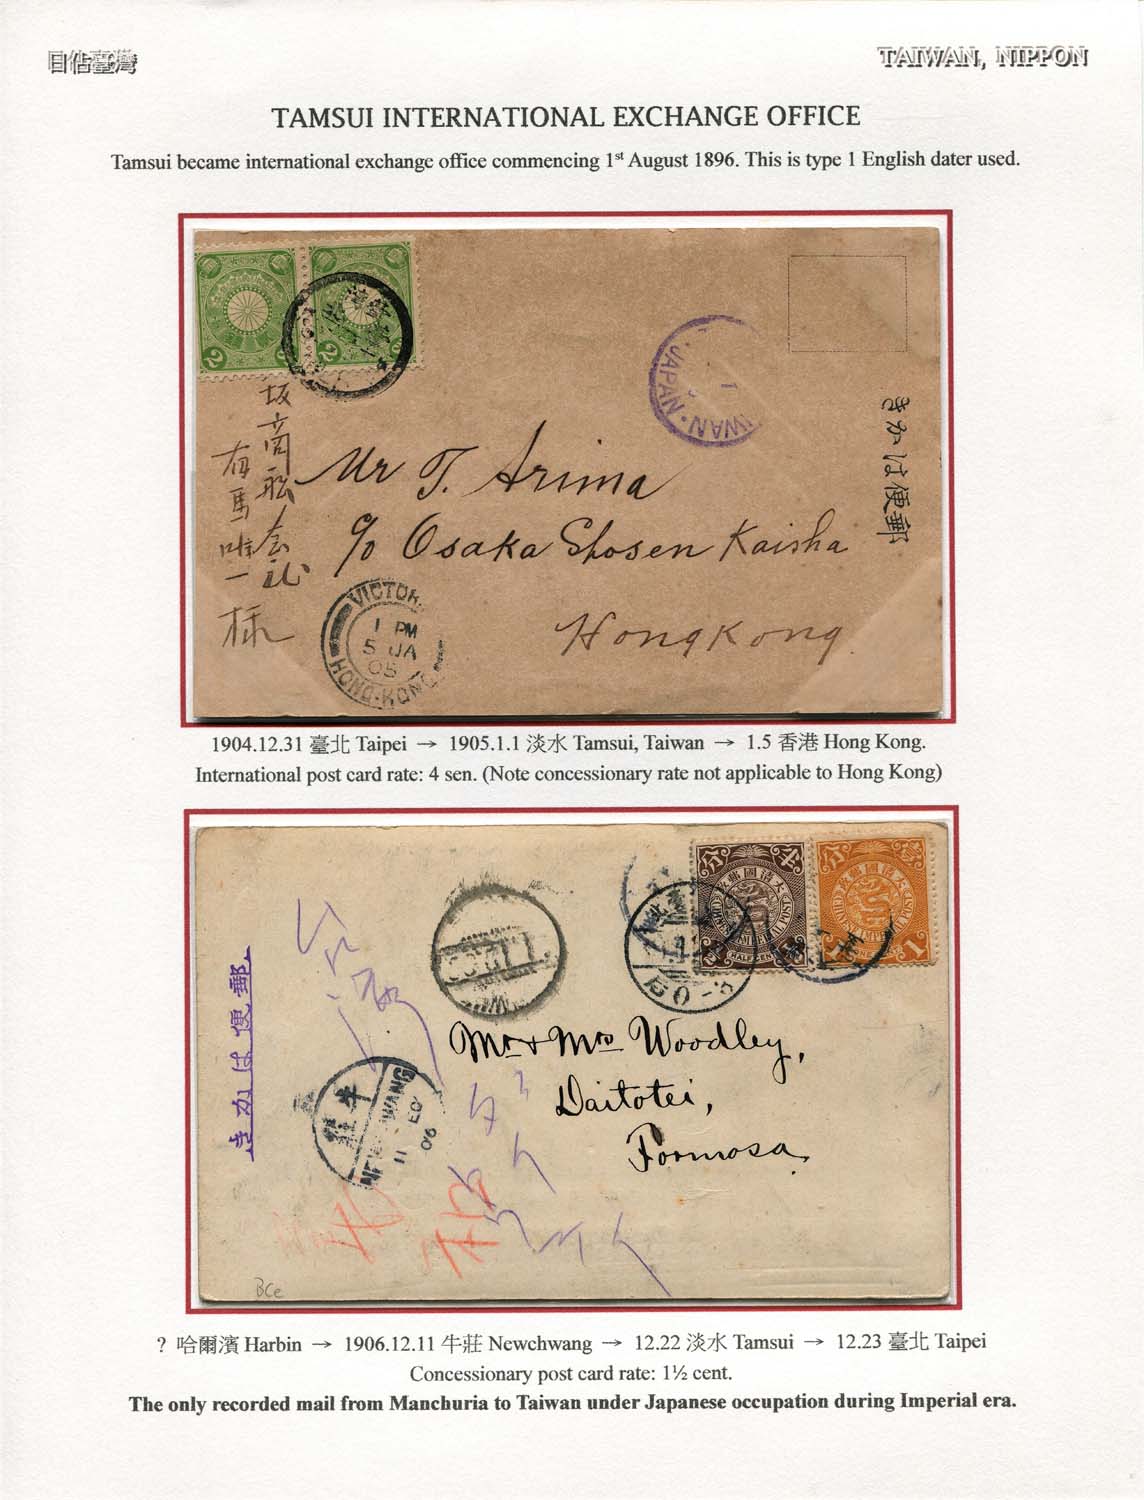 日佔臺灣
TAIWAN, NIPPON
TAMSUI INTERNATIONAL EXCHANGE OFFICE
Tamsui became international exchange office commencing 1st August 1896. This is type 1 English dater used.
2
2
WAN · JAPAN ·
1
きかは便郵
坂商船会社
有馬唯一
様
Mr T. Arima
c/o Osaka Shosen Kaisha
Hongkong
VICTOR
1 PM
5 JA
05
HONG-KONG
1904.12.31 臺北 Taipei → 1905.1.1 淡水 Tamsui, Taiwan → 1.5 香港 Hong Kong.
International post card rate: 4 sen. (Note concessionary rate not applicable to Hong Kong)
分 半
大清國郵政
CHINESE IMPERIAL POST
HALF CENT
大清國郵政
CHINESE IMPERIAL POST
1
きかは便郵
Mr & Mrs Woodley,
Daitotei,
Formosa
牛莊
NEWCHWANG
11
06
BCe
? 哈爾濱 Harbin → 1906.12.11 牛莊 Newchwang → 12.22 淡水 Tamsui → 12.23 臺北 Taipei
Concessionary post card rate: 1½ cent.
The only recorded mail from Manchuria to Taiwan under Japanese occupation during Imperial era.